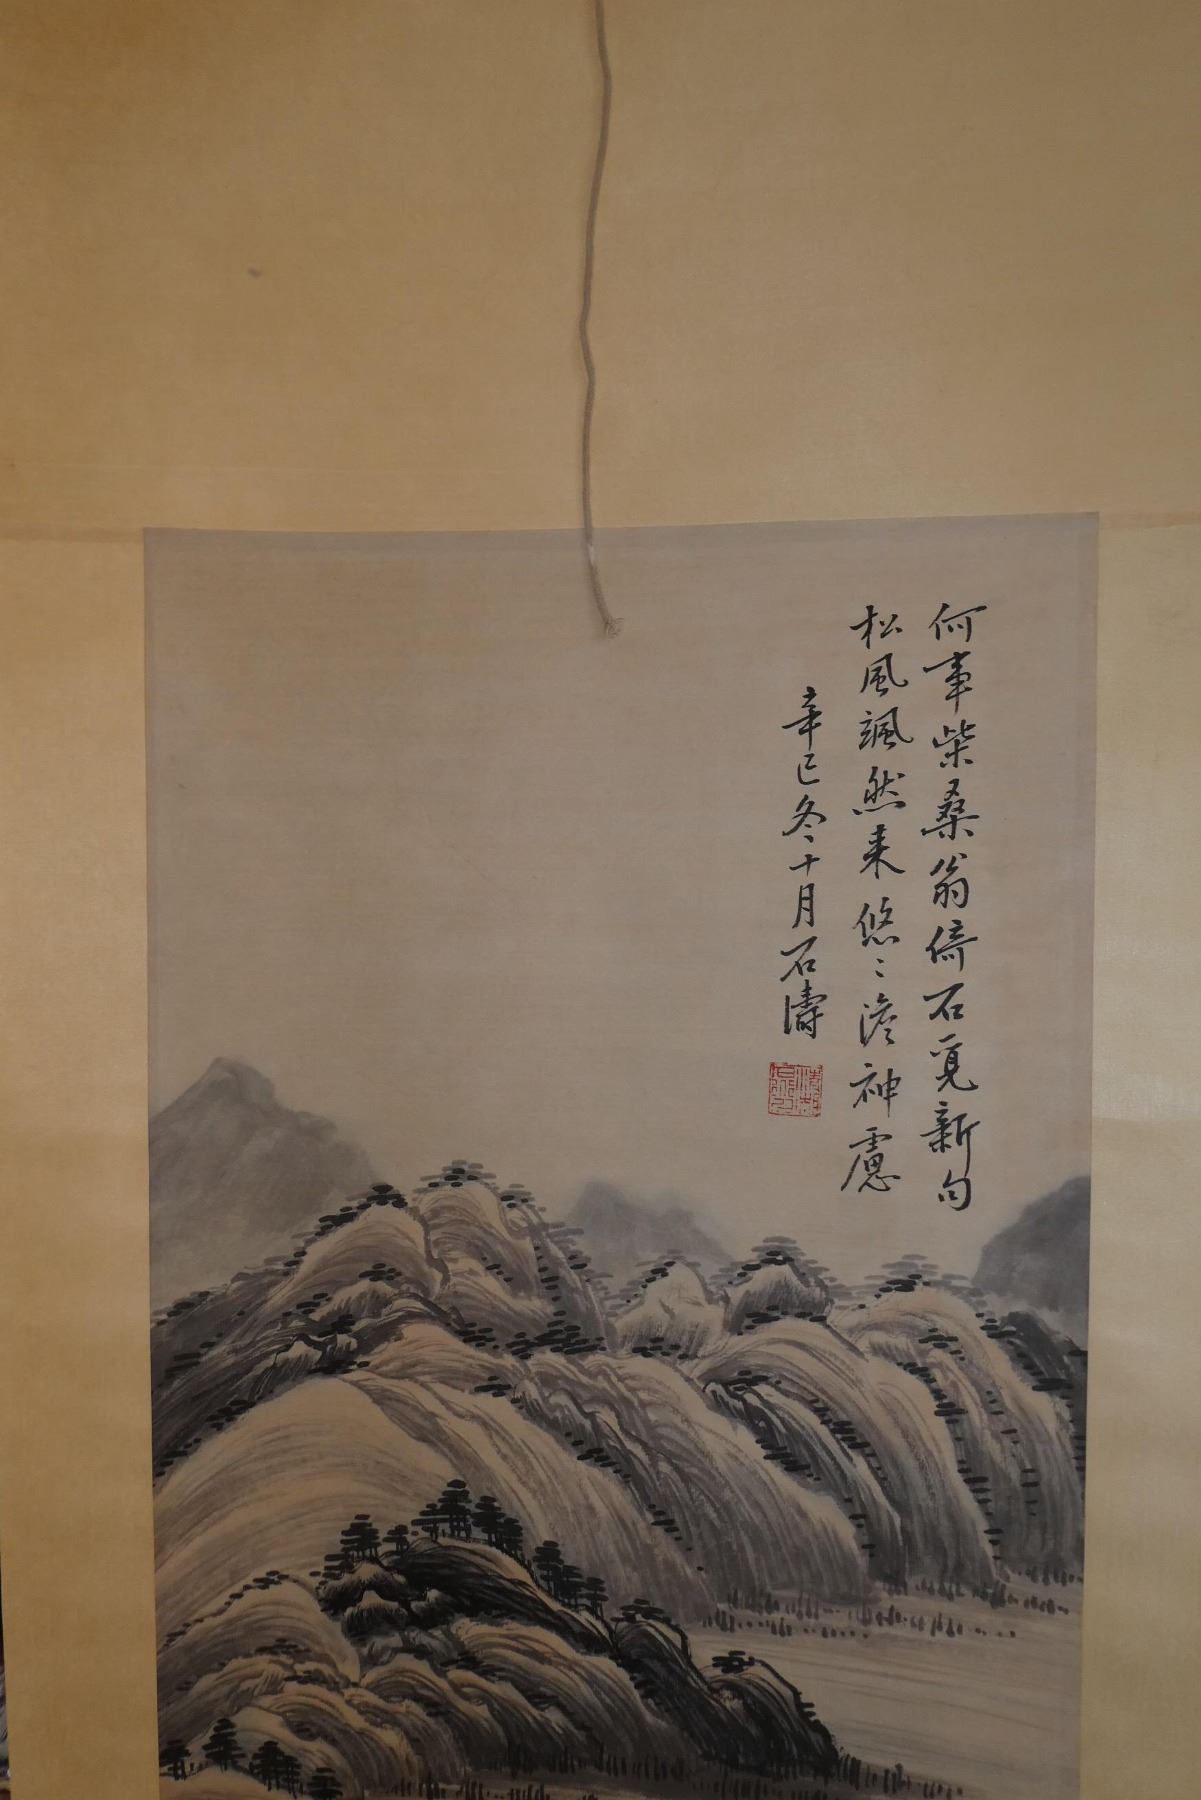 何事柴桑翁倚石覓新句
松風颯然来悠〻澹神慮
辛巳冬十月石濤